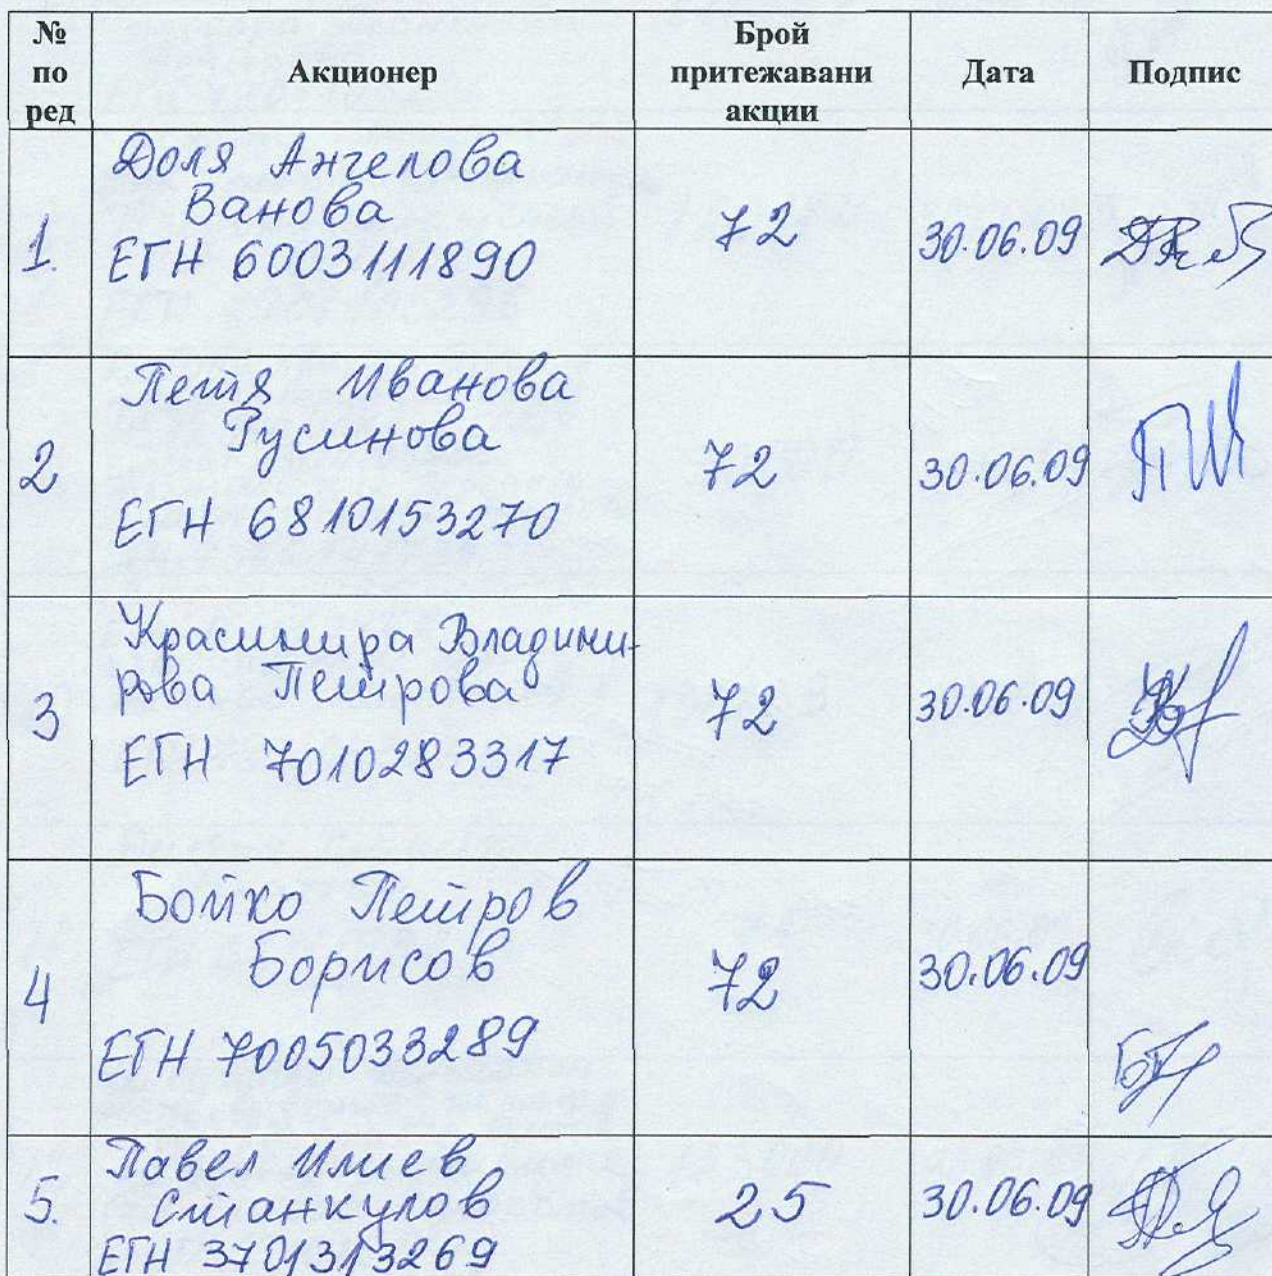 № по ред
Акционер
Брой притежавани акции
Дата
Подпис
1.
Доля Ангелова
Ванова
ЕГН 6003111890
72
30.06.09
2
Петя Иванова
Русинова
ЕГН 6810153270
72
30.06.09
3
Красимира Владими-
рова Петрова
ЕГН 7010283317
72
30.06.09
4
Бойко Петров
Борисов
ЕГН 7005033289
72
30.06.09
5.
Павел Илиев
Станкулов
ЕГН 3701313269
25
30.06.09